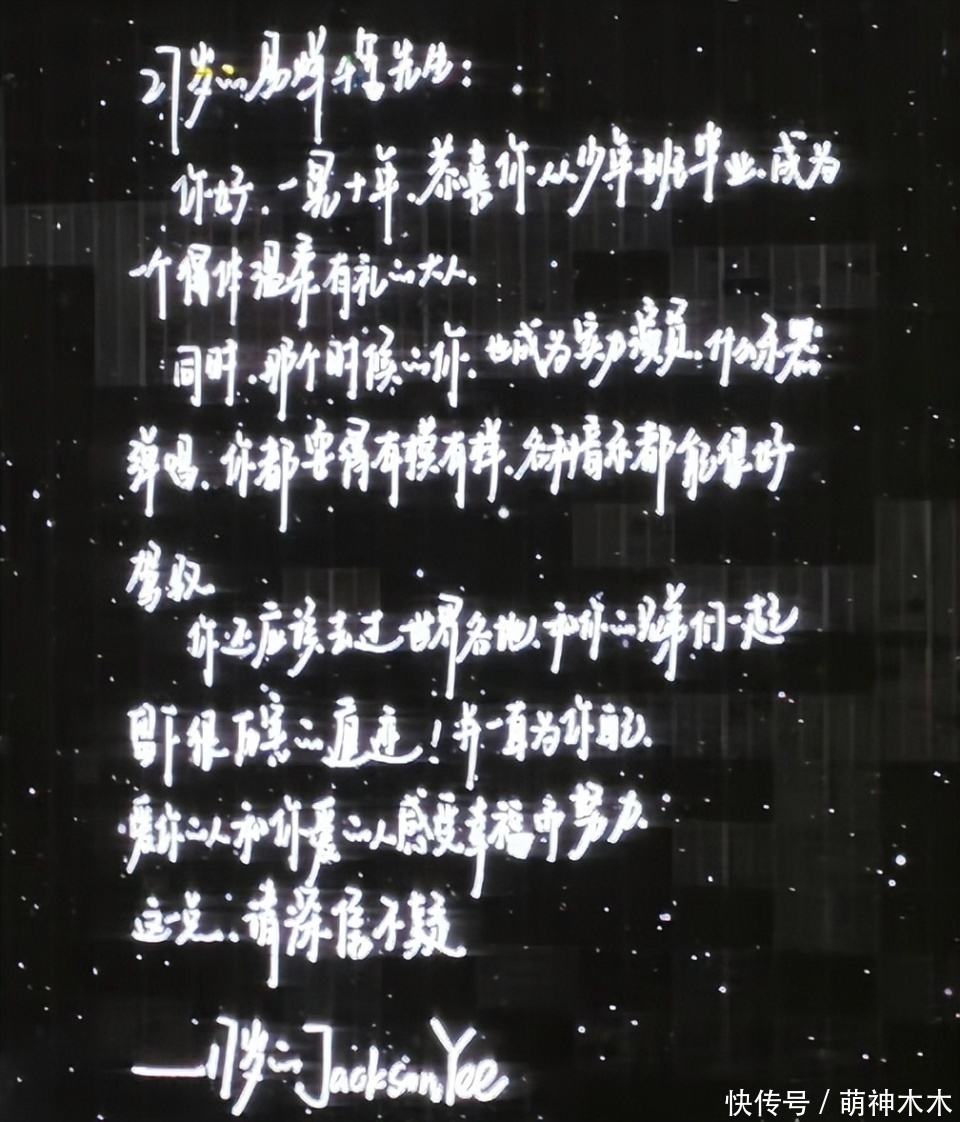 27岁的易烊千玺先生：
你好、一晃十年、恭喜你从少年班毕业、成为
一个得体温柔有礼的大人、
同时、那个时候的你、也成为实力演员、什么乐器
弹唱、你都耍得有模有样、各种音乐都能很好
驾驭
你还应该去过世界各地、和你的兄弟们一起
留下很厉害的痕迹！并一直为你自己、
爱你的人和你爱的人感受幸福而努力、
这一点、请深信不疑
——17岁的Jackson Yee
快传号 / 萌神木木